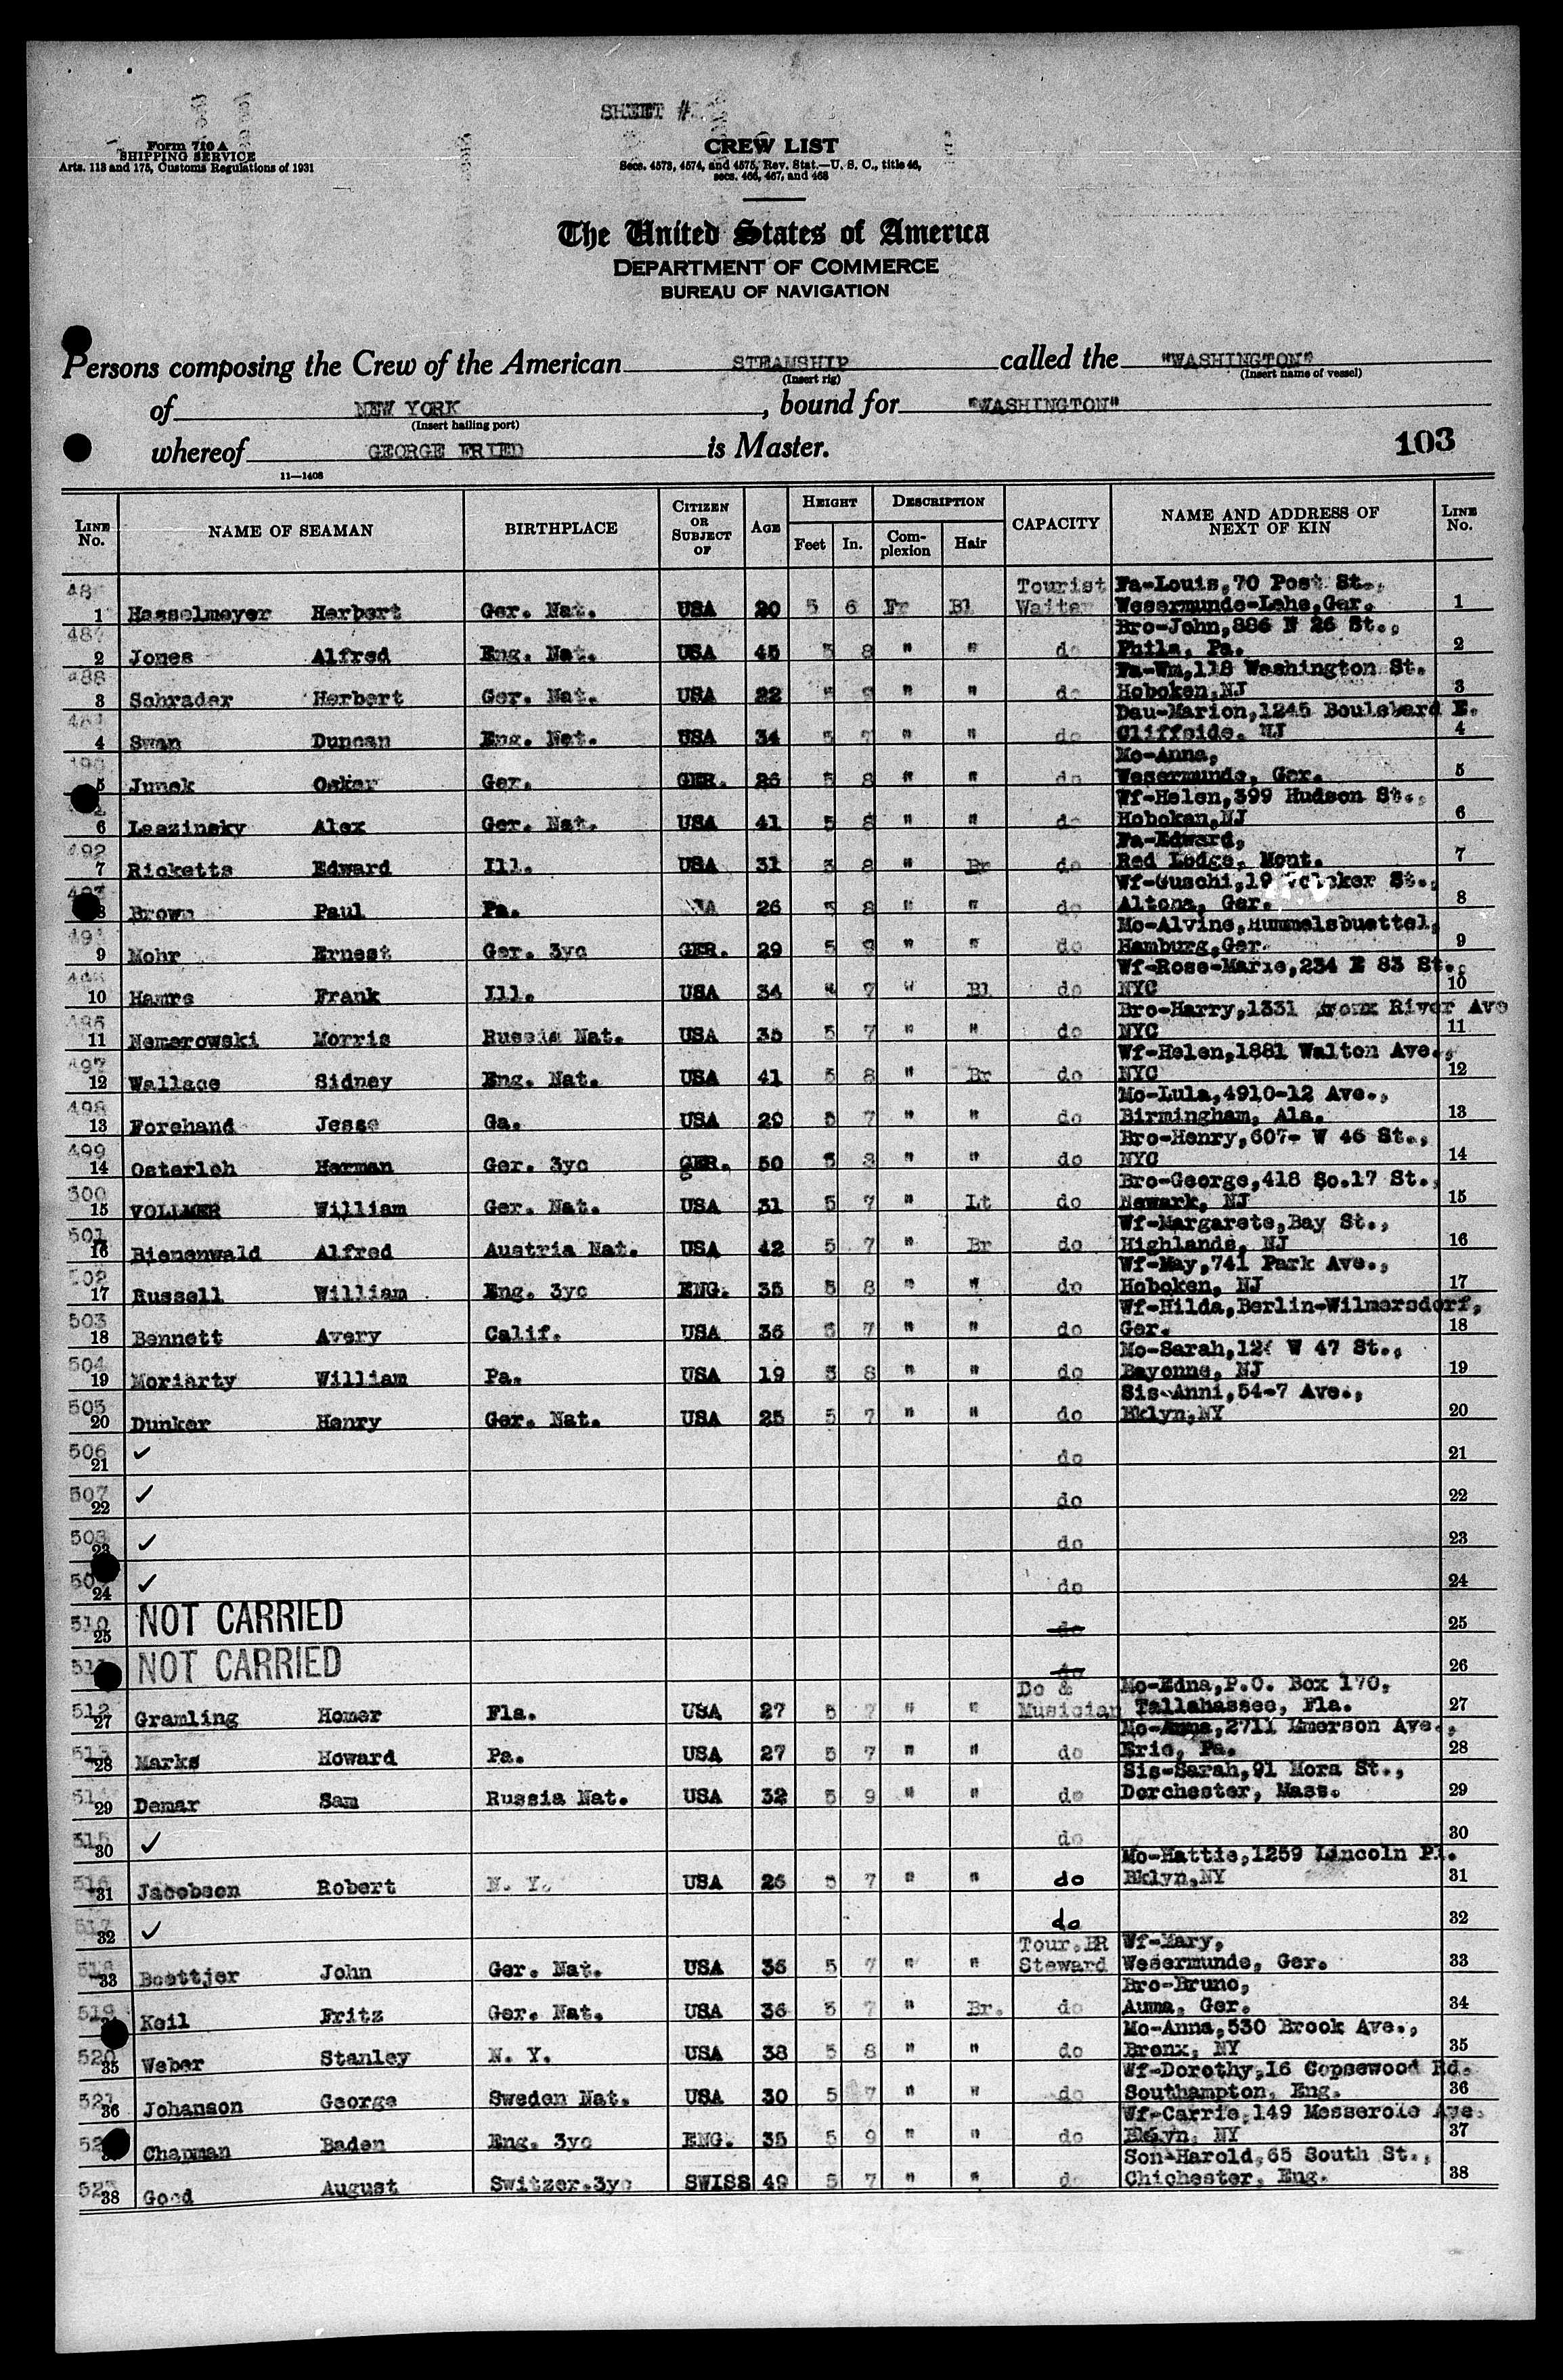 SHEET #
Form 710 A
SHIPPING SERVICE
Arts. 113 and 175, Customs Regulations of 1931
CREW LIST
Secs. 4573, 4574, and 4575, Rev. Stat.—U. S. C., title 46,
secs. 466, 467, and 468
The United States of America
DEPARTMENT OF COMMERCE
BUREAU OF NAVIGATION
Persons composing the Crew of the American STEAMSHIP called the "WASHINGTON"
(Insert rig) (Insert name of vessel)
of NEW YORK, bound for "WASHINGTON"
(Insert hailing port)
whereof GEORGE FRIED is Master. 103
11—1408
LINE No. NAME OF SEAMAN BIRTHPLACE CITIZEN OR SUBJECT OF AGE HEIGHT Feet In. DESCRIPTION Complexion Hair CAPACITY NAME AND ADDRESS OF NEXT OF KIN LINE No.
Tourist Fa-Louis,70 Post St.,
1 Hasselmeyer Herbert Ger. Nat. USA 20 5 6 Fr Bl Waiter Wesermunde-Lehe,Ger. 1
Bro-John,886 N 26 St.,
2 Jones Alfred Eng. Nat. USA 45 5 8 " " do Phila, Pa. 2
488 Fa-Wm,118 Washington St.
3 Schrader Herbert Ger. Nat. USA 22 " " " do Hoboken,NJ 3
Dau-Marion,1245 Boulebard E.
4 Swan Duncan Eng. Nat. USA 34 5 7 " " do Cliffside. NJ 4
Mo-Anna,
5 Junek Oskar Ger. GER. 26 5 8 " " do Wesermunde, Ger. 5
Wf-Helen,399 Hudson St.,
6 Leszinsky Alex Ger. Nat. USA 41 5 8 " " do Hoboken,NJ 6
492 Fa-Edward,
7 Ricketts Edward Ill. USA 31 5 8 " Br do Red Lodge, Mont. 7
Wf-Guschi,19 St.,
8 Brown Paul Pa. 26 5 8 " " do Altona, Ger. 8
Mo-Alvine,Hummelsbuettel,
9 Mohr Ernest Ger. 3yc GER. 29 5 9 " " do Hamburg,Ger. 9
Wf-Rose-Marie,234 E 83 St.,
10 Hamre Frank Ill. USA 34 " 7 " Bl do NYC 10
Bro-Harry,1331 River Ave
11 Nemerowski Morris Russia Nat. USA 35 5 7 " " do NYC 11
497 Wf-Helen,1881 Walton Ave.,
12 Wallace Sidney Eng. Nat. USA 41 5 8 " Br do NYC 12
498 Mo-Lula,4910-12 Ave.,
13 Forehand Jesse Ga. USA 29 5 7 " " do Birmingham, Ala. 13
499 Bro-Henry,607- W 46 St.,
14 Osterloh Herman Ger. 3yc GER. 50 5 8 " " do NYC 14
500 Bro-George,418 So.17 St.,
15 VOLLMER William Ger. Nat. USA 31 5 7 " Lt do Newark, NJ 15
501 Wf-Margarete,Bay St.,
16 Bienenwald Alfred Austria Nat. USA 42 5 7 " Br do Highlands, NJ 16
502 Wf-May,741 Park Ave.,
17 Russell William Eng. 3yc ENG. 35 5 8 " " do Hoboken, NJ 17
503 Wf-Hilda,Berlin-Wilmersdorf,
18 Bennett Avery Calif. USA 36 5 7 " " do Ger. 18
504 Mo-Sarah, W 47 St.,
19 Moriarty William Pa. USA 19 5 8 " " do Bayonne, NJ 19
505 Sis-Anni,54-7 Ave.,
20 Dunker Henry Ger. Nat. USA 25 5 7 " " do Bklyn,NY 20
506
21 ✓ do 21
507
22 ✓ do 22
508
23 ✓ do 23
24 ✓ do 24
510
25 NOT CARRIED do 25
26 NOT CARRIED do 26
512 Do & Mo-Edna,P.O. Box 170,
27 Gramling Homer Fla. USA 27 5 7 " " Musician Tallahassee, Fla. 27
513 Mo-Anna,2711 Emerson Ave.,
28 Marks Howard Pa. USA 27 5 7 " " do Erie, Pa. 28
Sis-Sarah,91 Mora St.,
29 Demar Sam Russia Nat. USA 32 5 9 " " do Dorchester, Mass. 29
515
30 ✓ do 30
516 Mo-Hattie,1259 Lincoln Pl.
31 Jacobsen Robert N. Y. USA 26 5 7 " " do Bklyn,NY 31
517
32 ✓ do 32
518 Tour.BR Wf-Mary,
33 Boettjer John Ger. Nat. USA 36 5 7 " " Steward Wesermunde, Ger. 33
519 Bro-Bruno,
Keil Fritz Ger. Nat. USA 36 5 7 " Br. do Auma, Ger. 34
520 Mo-Anna,530 Brook Ave.,
35 Weber Stanley N. Y. USA 38 5 8 " " do Bronx, NY 35
521 Wf-Dorothy,16 Copsewood Rd.
36 Johanson George Sweden Nat. USA 30 5 7 " " do Southampton, Eng. 36
Wf-Carrie,149 Messerole Ave.
Chapman Baden Eng. 3yc ENG. 35 5 9 " " do Bklyn, NY 37
523 Son-Harold,65 South St.,
38 Good August Switzer.3yc SWISS 49 5 7 " " do Chichester, Eng. 38